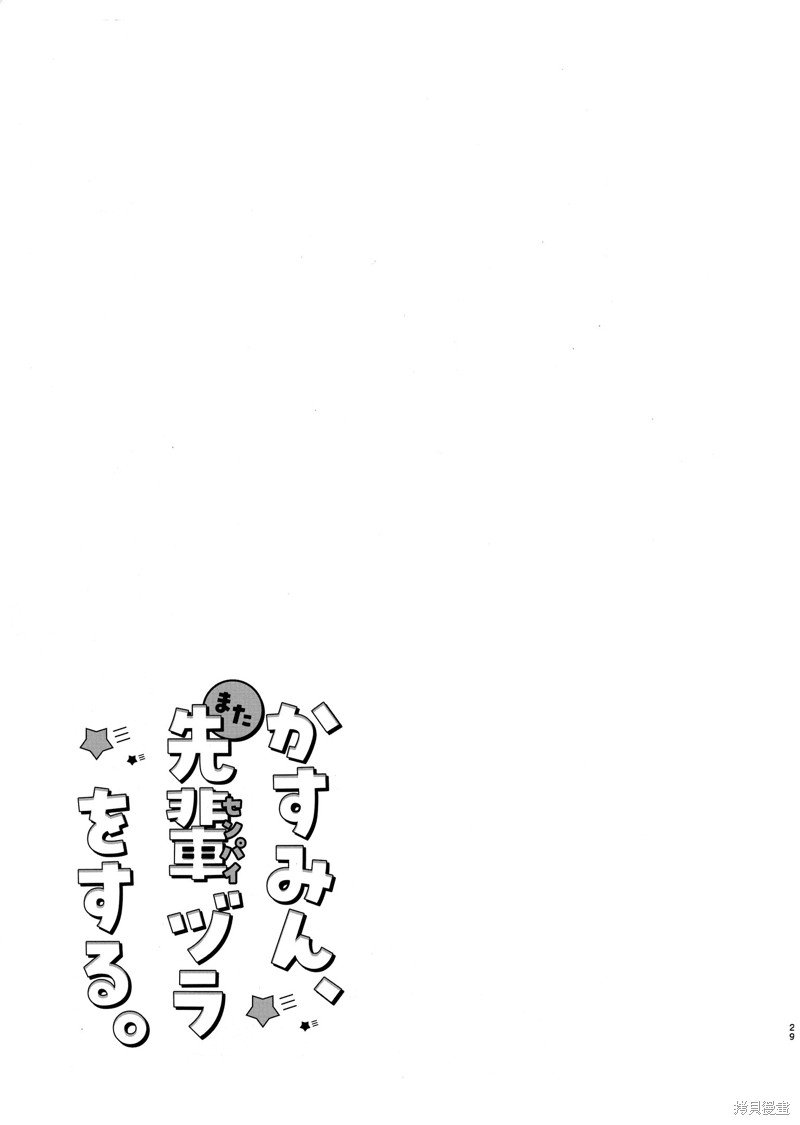 かすみん、
また
先輩ヅラ
センパイ
をする。
29
拷貝漫畫